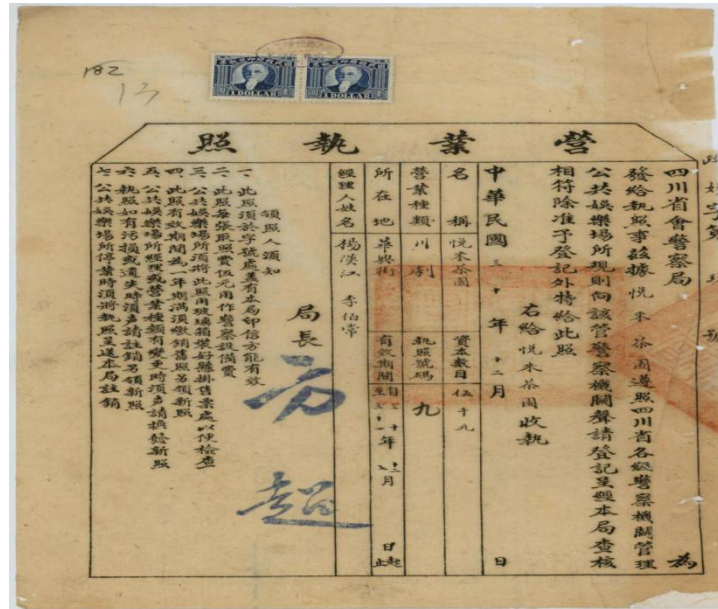 182
13
1 DOLLAR
1 DOLLAR
營業執照
四川省會警察局 為
發給執照事茲據悅來茶園遵照四川省各級警察機關管理
公共娛樂場所規則向該管警察機關聲請登記呈經本局查核
相符除准予登記外特給此照
右給悅來茶園收執
中華民國三十年十二月 日
名稱 悅來茶園 資本數目 伍千元
營業種類 川劇 執照號碼 九
所在地 華興街 有效期間
經理人姓名 楊漢江 李伯常
局長 方超
領照人須知
一、此照須於字號處蓋有本局印信方能有效
二、此照每張取照費伍元用作警察設備費
三、公共娛樂場所須將此照用玻璃箱裝好懸掛售票處以便檢查
四、此照有效期間為一年期滿須繳銷舊照另領新照
五、公共娛樂場所經理或營業種類有變更時須聲請換發新照
六、執照如有污損或遺失時須聲請註銷另領新照
七、公共娛樂場所停業時須將執照呈送本局註銷